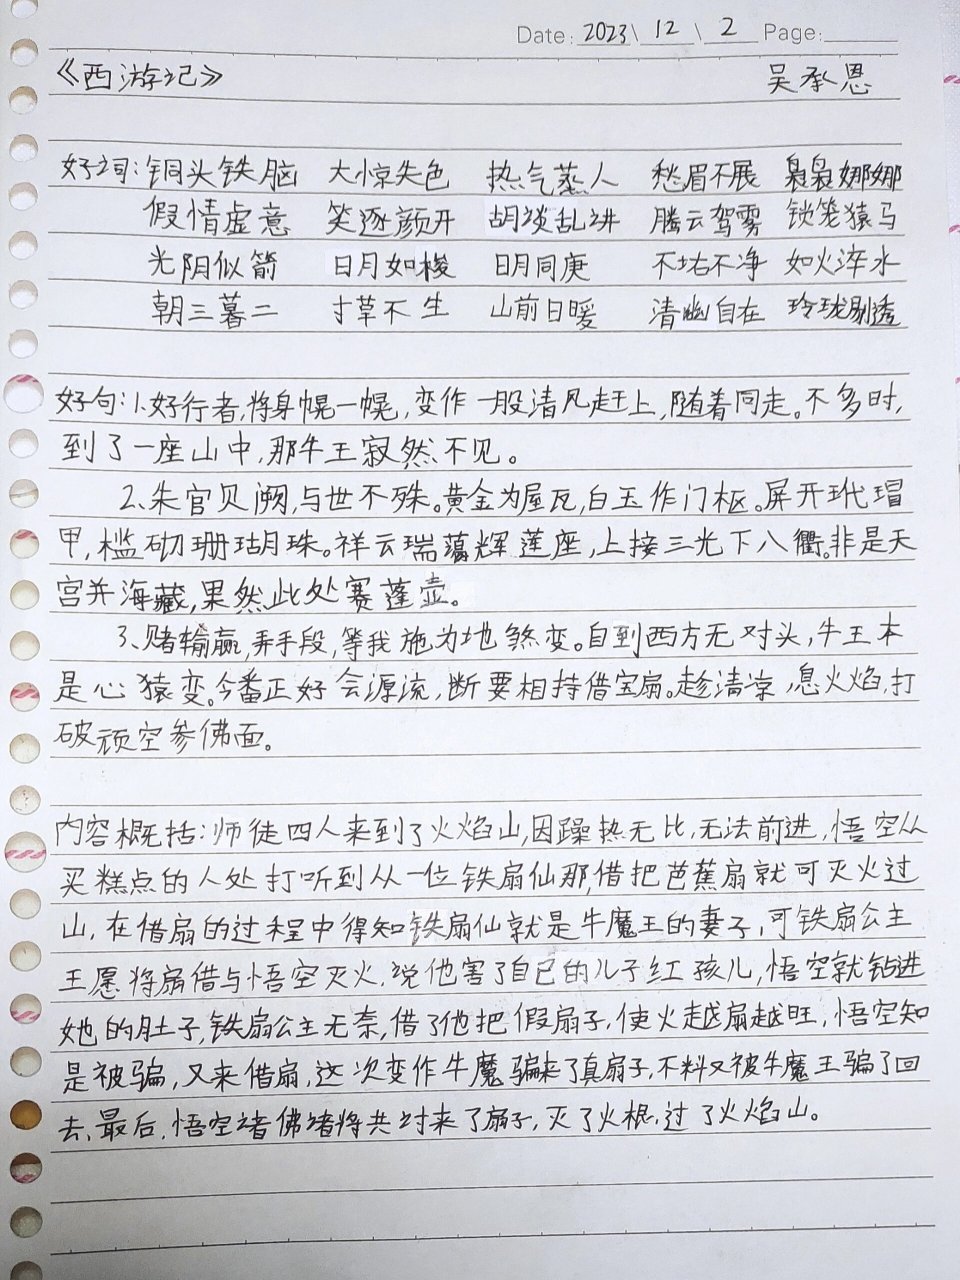 Date: 2023\ 12 \ 2 Page:
《西游记》 吴承恩
好词:铜头铁脑 大惊失色 热气蒸人 愁眉不展 袅袅娜娜
假情虚意 笑逐颜开 胡谈乱讲 腾云驾雾 锁笼猿马
光阴似箭 日月如梭 日月同庚 不垢不净 如火淬水
朝三暮二 寸草不生 山前日暖 清幽自在 玲珑剔透
好句:1.好行者,将身幌一幌,变作一股清风赶上,随着同走。不多时,
到了一座山中,那牛王寂然不见。
2.朱宫贝阙,与世不殊。黄金为屋瓦,白玉作门枢。屏开玳瑁
甲,槛砌珊瑚珠。祥云瑞蔼辉莲座,上接三光下八衢。非是天
宫并海藏,果然此处赛蓬壶。
3.赌输赢,弄手段,等我施为地煞变。自到西方无对头,牛王本
是心猿变。今番正好会源流,断要相持借宝扇。趁清凉,息火焰,打
破顽空参佛面。
内容概括:师徒四人来到了火焰山,因躁热无比,无法前进,悟空从
买糕点的人处打听到从一位铁扇仙那,借把芭蕉扇就可灭火过
山,在借扇的过程中得知铁扇仙就是牛魔王的妻子,可铁扇公主
王愿将扇借与悟空灭火,说他害了自己的儿子红孩儿,悟空就钻进
她的肚子,铁扇公主无奈,借了他把假扇子,使火越扇越旺,悟空知
是被骗,又来借扇,这次变作牛魔骗来了真扇子,不料又被牛魔王骗了回
去,最后,悟空诸佛诸将共讨来了扇子,灭了火根,过了火焰山。